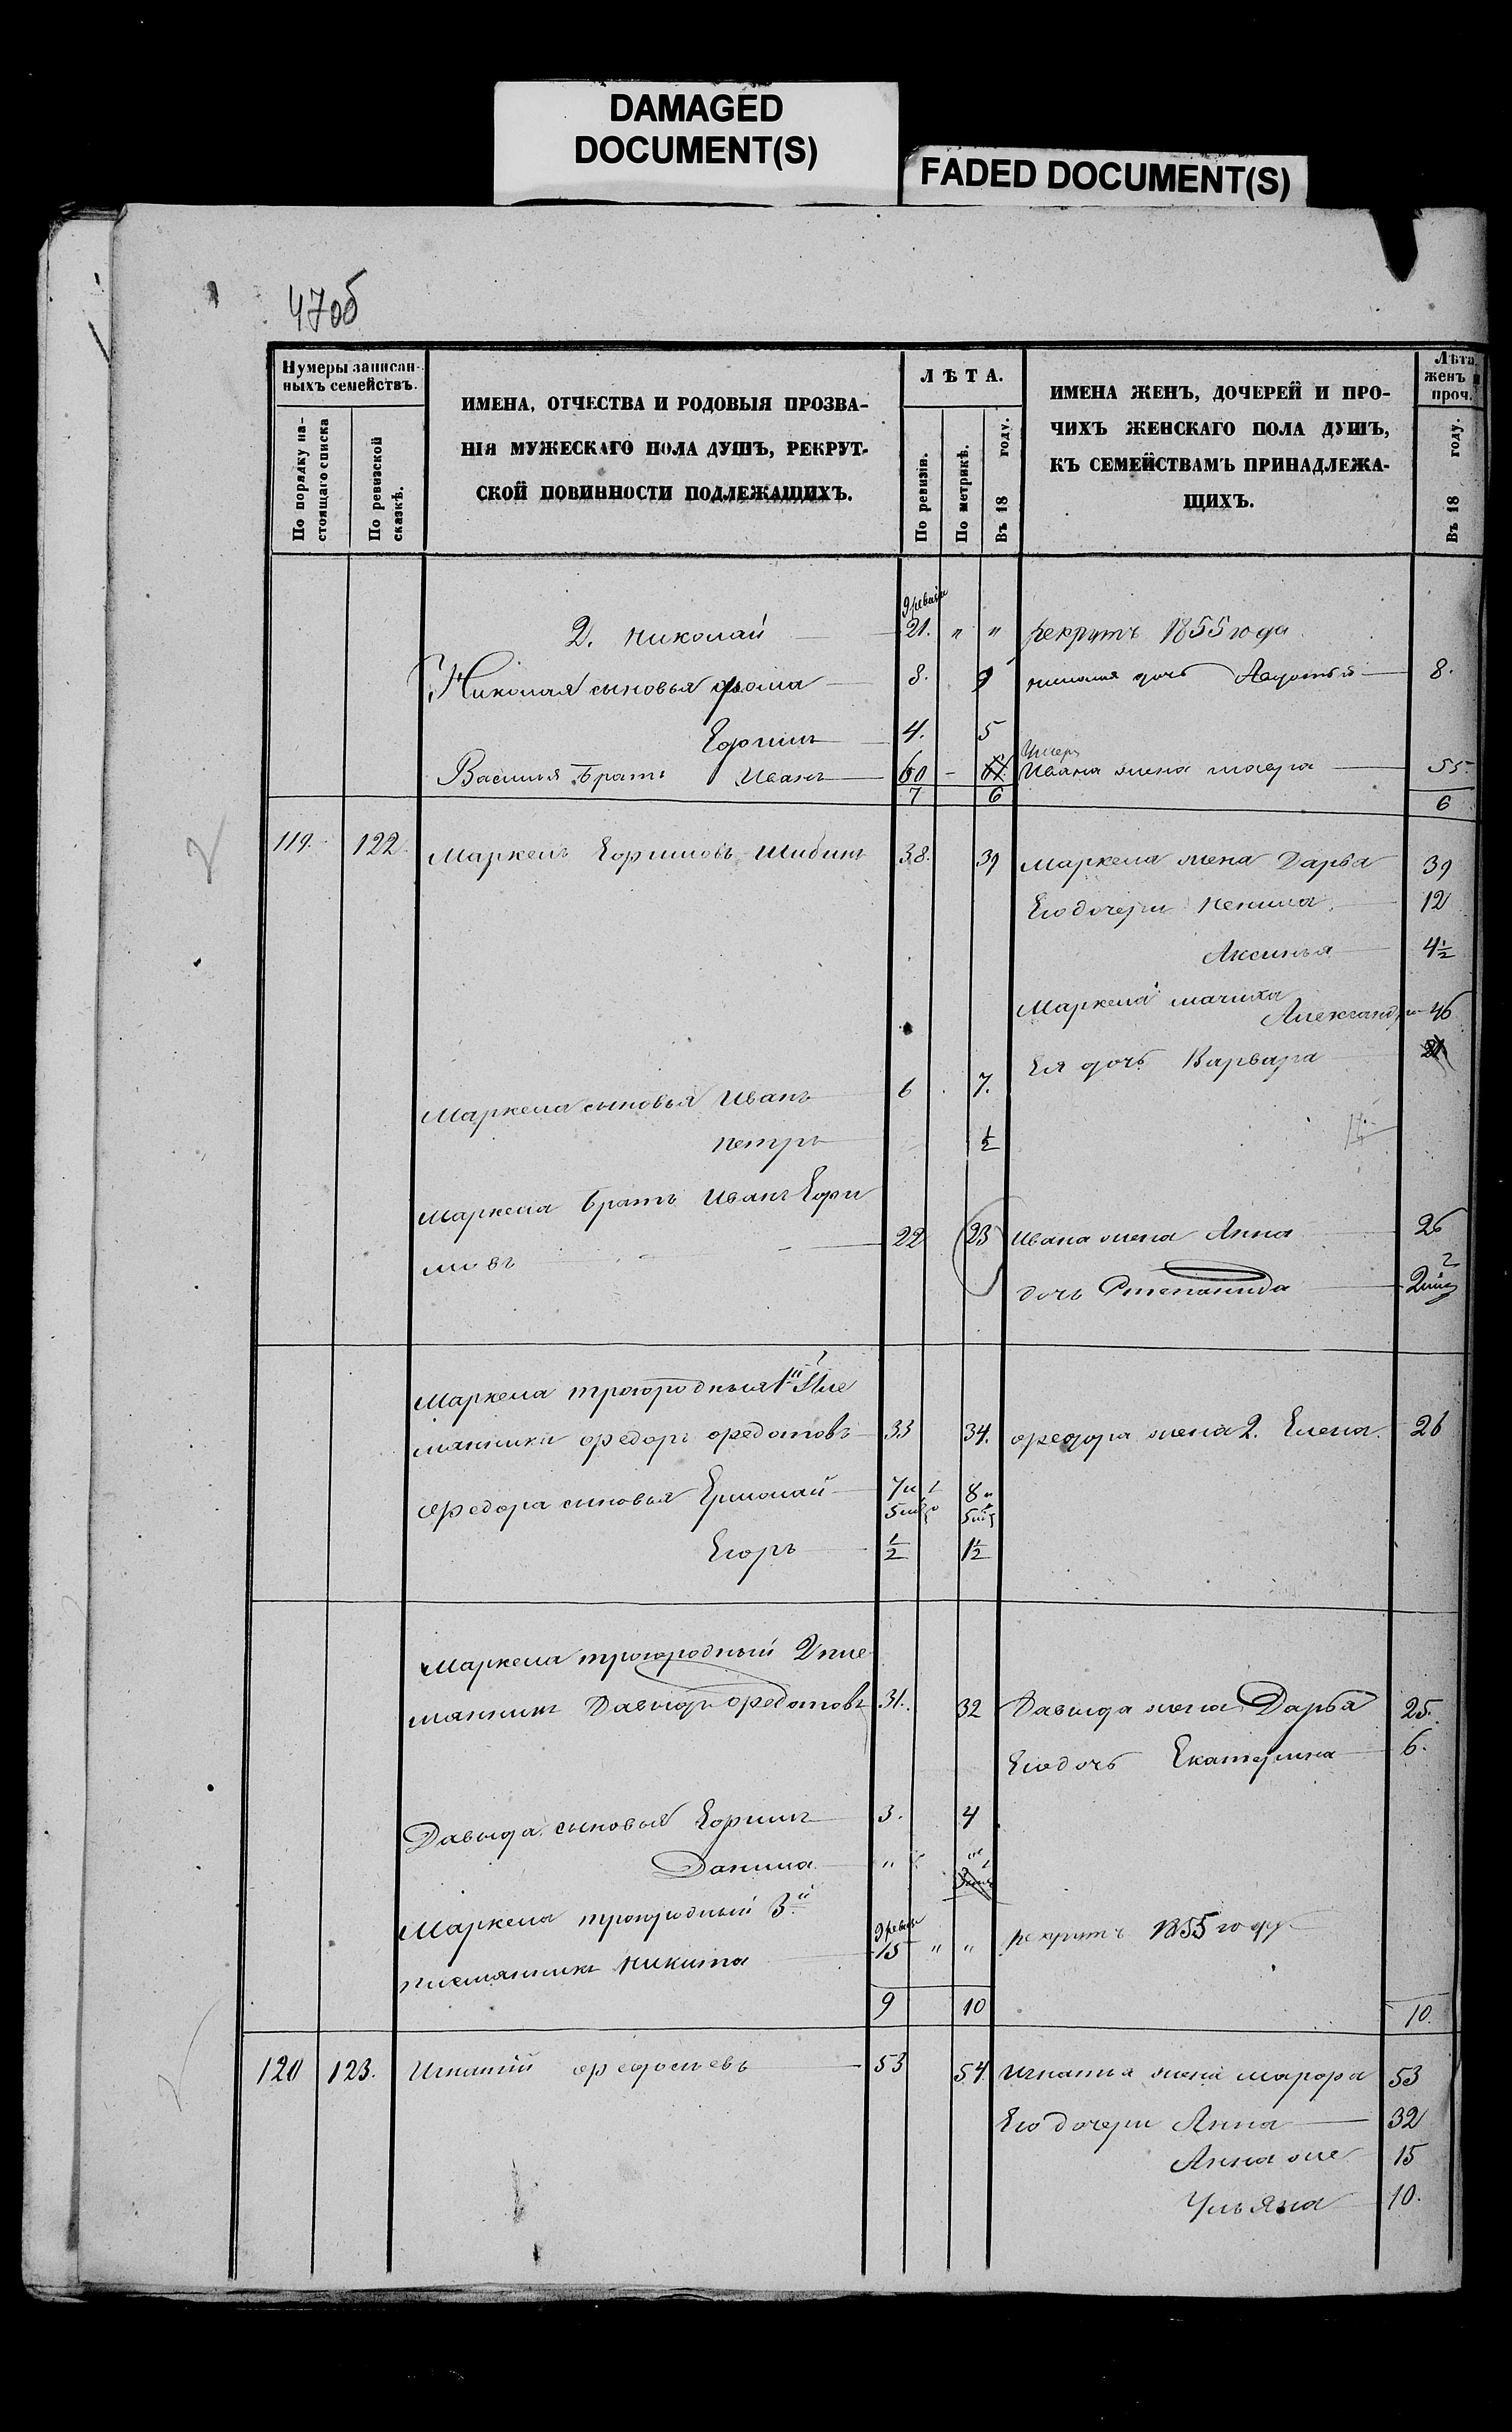 DAMAGED
DOCUMENT(S)
FADED DOCUMENT(S)
47об
Нумеры записан-
ныхъ семействъ.
По порядку на-
стоящаго списка
По ревизской
сказкѣ.
ИМЕНА, ОТЧЕСТВА И РОДОВЫЯ ПРОЗВА-
НІЯ МУЖЕСКАГО ПОЛА ДУШЪ, РЕКРУТ-
СКОЙ ПОВИННОСТИ ПОДЛЕЖАЩИХЪ.
ЛѢТА.
По ревизіи.
По метрикѣ.
Въ 18 году.
ИМЕНА ЖЕНЪ, ДОЧЕРЕЙ И ПРО-
ЧИХЪ ЖЕНСКАГО ПОЛА ДУШЪ,
КЪ СЕМЕЙСТВАМЪ ПРИНАДЛЕЖА-
ЩИХЪ.
Лѣта
женъ и
проч.
Въ 18 году.
9 ревизіи
2. Николай 21. " " рекрутъ 1855 года
Николая сыновья Фома 8. 9 дочь Авдотья 8.
Ефимъ 4. 5
Умеръ
Василья братъ Иванъ 60 - Ивана жена 55.
7 6 6
119. 122. Маркелъ Ефимовъ Шибинъ 38. 39 Маркела жена Дарья 39
Его дочери 12
Аксинья 4½
Маркела мачиха
Александра 46
Ея дочь Варвара 21
Маркела сыновья Иванъ 6 7.
Петръ ½
Маркела братъ Иванъ Ефи
мовъ 22 23 Ивана жена Анна 26
дочь Степанида
Маркела троюродныя 1й Пле
мянники Федоръ Федотовъ 33 34. Федора жена 2. Елена 26
Федора сыновья Ермолай 7 и 8 и
5 5
Егоръ ½ 1½
Маркела троюродный 2 пле
мянникъ Давыдъ Федотовъ 31. 32 Давыда жена Дарья 25.
Его дочь Екатерина 6.
Давыда сыновья Ефимъ 3. 4
Данила "
Маркела троюродный 3й
9 ревизіи
племянникъ Никита 15 " " рекрутъ 1855 году
9 10 10.
120 123. Игнатій Федосѣевъ 53 54 Игнатья жена Марфа 53
Его дочери Анна 32
Анна же 15
Ульяна 10.